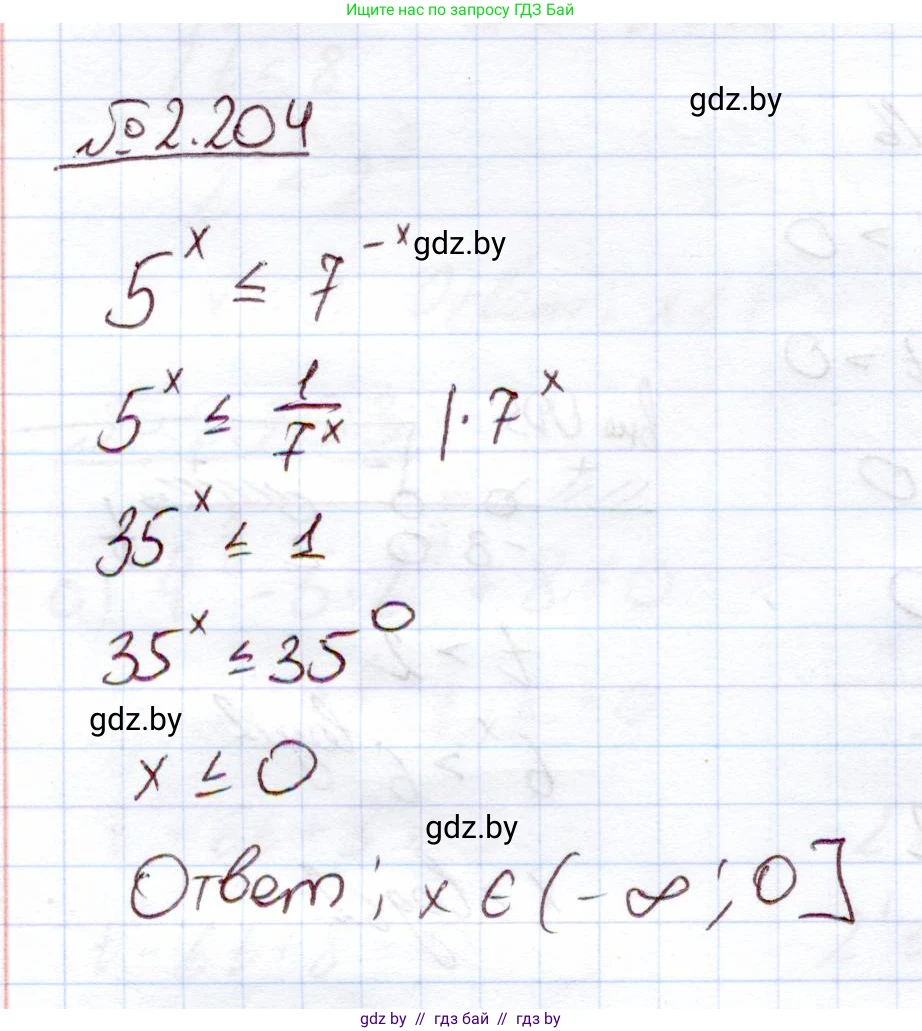 Ищите нас по запросу ГДЗ Бай
№ 2.204
gdz.by
5^x ≤ 7^-x
gdz.by
5^x ≤ 1/7^x |·7^x
35^x ≤ 1
35^x ≤ 35^0
gdz.by
x ≤ 0
gdz.by
Ответ; x ∈ (-∞; 0]
gdz by // гдз бай // гдз by